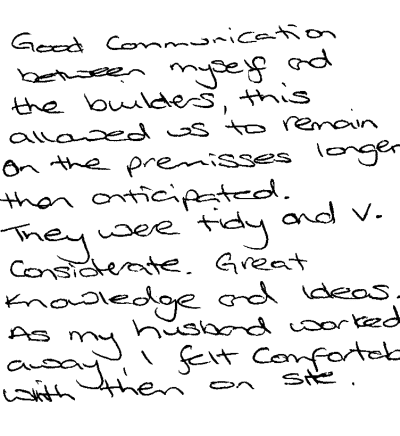 Good Communication
between myself and
the builders, this
allowed us to remain
on the premisses longer
than anticipated.
They were tidy and v.
Considerate. Great
Knowledge and Ideas.
As my husband worked
away, I felt Comfortab
with then on site.